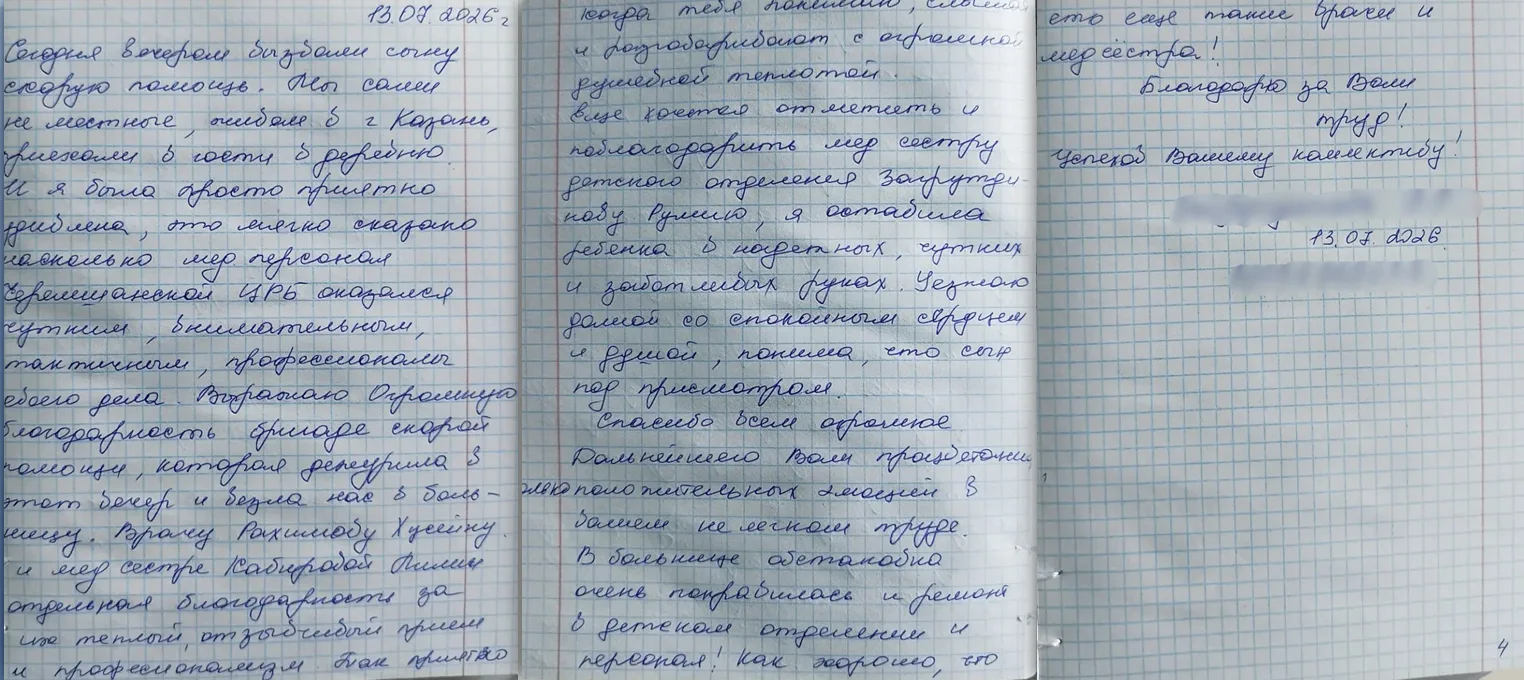 13.07.2026г
Сегодня вечером вызвали сыну
скорую помощь. Мы сами
не местные, живем в г Казань,
приехали в гости в деревню.
И я была просто приятно
удивлена, это мягко сказано
насколько мед персонал
Черемшанской ЦРБ оказался
чутким, внимательным,
тактичным, профессионалы
своего дела. Выражаю Огромную
благодарность бригаде скорой
помощи, которая дежурила в
этот вечер и везла нас в боль-
ницу. Врачу Рахимову Хусейну
и мед сестре Кабировой Лилии
отдельная благодарность за
их теплый, отзывчивый прием
и профессионализм. Так приятно
когда тебя понимаю, слышат
и разговаривают с огромной
душевной теплотой.
еще хочется отметить и
поблагодарить мед сестру
детского отделения Загрутди-
нову Румию, я оставила
ребенка в надежных, чутких
и заботливых руках. Уезжаю
домой со спокойным сердцем
и душой, понимая, что сын
под присмотром.
Спасибо всем огромное
Дальнейшего Вам процветания,
только положительных эмоций в
вашем не легком труде.
В больнице обстановка
очень понравилась и ремонт
в детском отделении и
персонал! Как хорошо, что
есть еще такие врачи и
медсёстра!
Благодарю за Ваш
труд!
Успехов Вашему коллективу!
13.07.2026
4